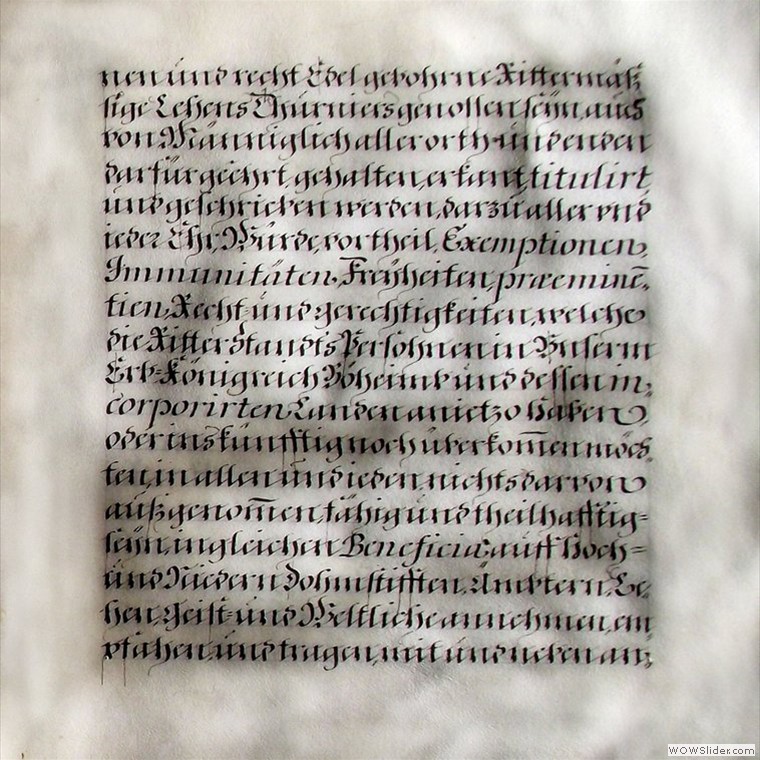 nen und recht Edel gebohrne Rittermäß¸
sige Lehens Thurniersgenossen seÿn, auch
von Männiglich aller orth-und enden
darfür geehrt, gehalten, erkant, titulirt
und geschrieben werden, darzu aller und
ieder Ehr, Würde, vortheil, Exemptionen,
Immunitäten, Freÿheiten, præeminē¸
tien, Recht-und gerechtigkeiten, welche
die Ritter Standts Persohnen in Unserm
Erb-Königreich Böheimb und dessen in¸
corporirten Landen anietzo haben
oder inskünfftig noch überkom̄en möch¸
ten, in allen und ieden nichts darvon
außgenom̄en, fähig und theilhafftig-
seÿn, ingleichen Beneficia auff Hoch-
und Niedern Dohmstifften, Ämbtern, Le¸
hen, Geist-und Weltliche annehmen, em
pfahen, und tragen, mit und neben an¸
WOWSlider.com